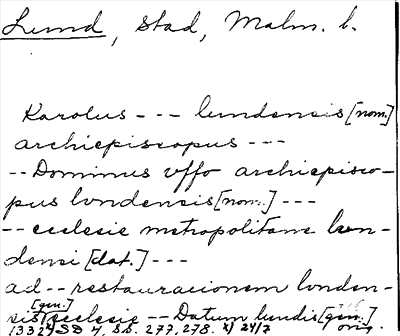 Lund, stad, Malm. l.
Karolus --- lundensis [nom.]
archiepiscopus ---
-- Dominus vffo archiepisco-
pus lvndensis [nom.] ---
-- ecclesie metropolitane lun-
densi [dat.] ---
ad -- restauracionem londen-
sis [gen.] ecclesie -- Datum lundis [gen.]
1332 x) SD 4, s.s. 277, 278. x) 24/7 orig.